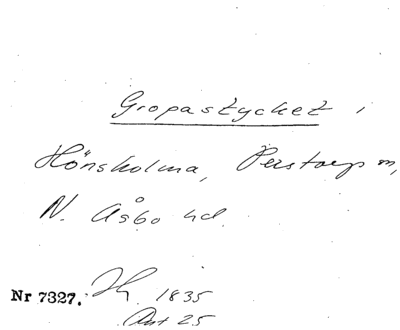 Gropastycket i
Hönsholma, Perstorp sn,
N. Åsbo hd.
Nr 7327. 1835
Art 25